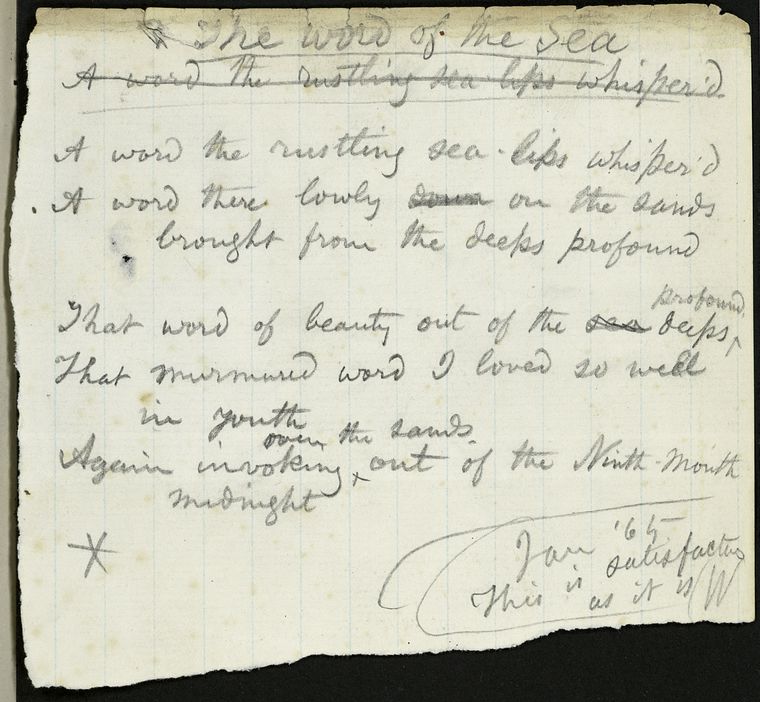 The word of the Sea
A word the rustling sea-lips whisper'd
A word the rustling sea-lips whisper'd
A word there lowly down on the sands
brought from the deeps profound
profound
That word of beauty out of the sea deeps,
That murmured word I loved so well
in youth
over the sands
Again invoking out of the Ninth-Month
midnight
Jan '65
This is satisfactory
as it is W